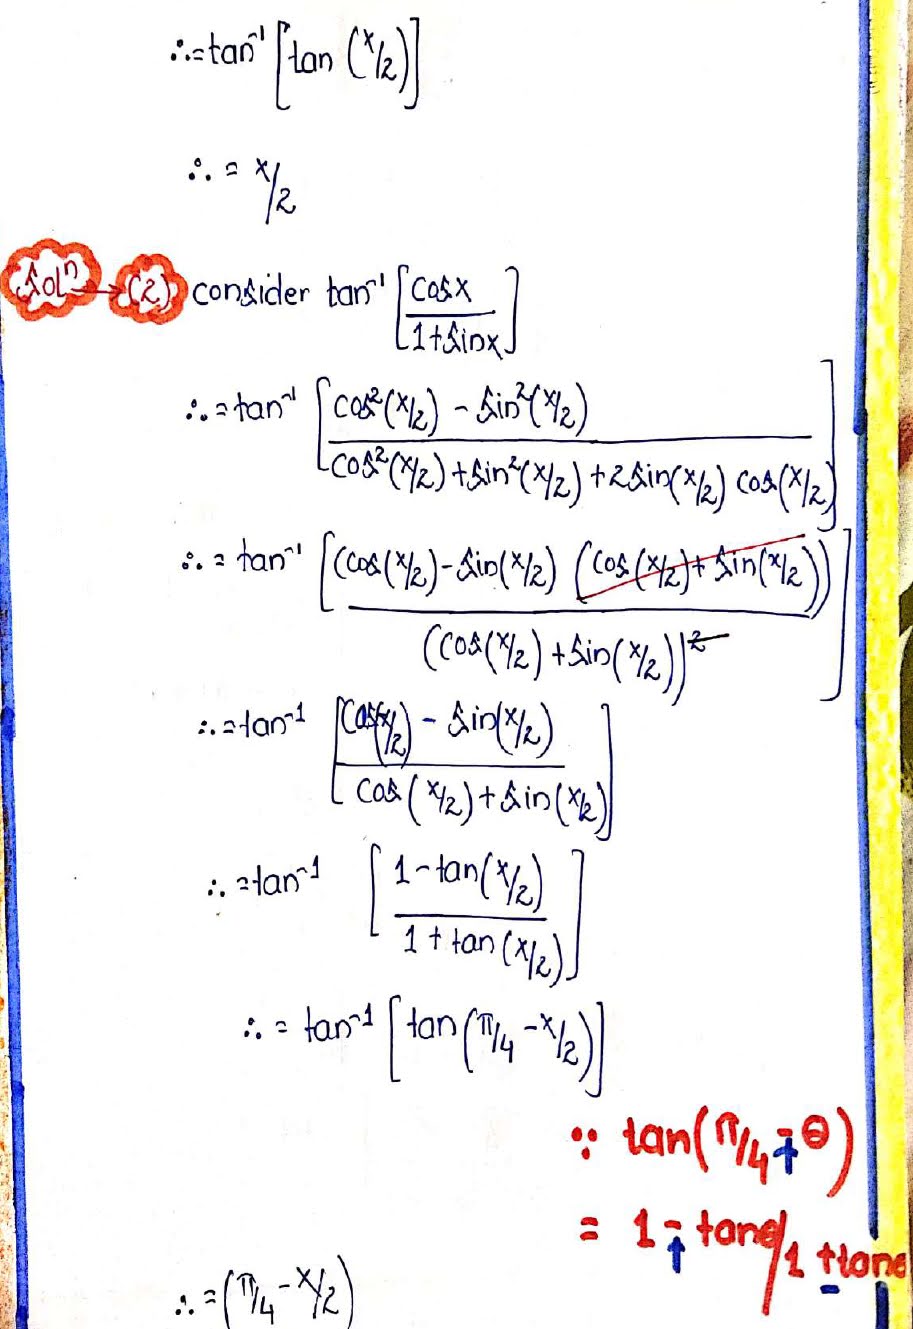 ∴ = tan⁻¹ [tan (x/2)]
∴ = x/2
Solⁿ → (2) consider tan⁻¹ [cosx / 1+sinx]
∴ = tan⁻¹ [cos²(x/2) - sin²(x/2) / cos²(x/2) + sin²(x/2) + 2sin(x/2) cos(x/2)]
∴ = tan⁻¹ [(cos(x/2) - sin(x/2) (cos(x/2) + sin(x/2)) / (cos(x/2) + sin(x/2))²]
∴ = tan⁻¹ [cos(x/2) - sin(x/2) / cos(x/2) + sin(x/2)]
∴ = tan⁻¹ [1 - tan(x/2) / 1 + tan(x/2)]
∴ = tan⁻¹ [tan(π/4 - x/2)]
∵ tan(π/4 ∓ θ)
= 1 ∓ tanθ / 1 ± tanθ
∴ = (π/4 - x/2)